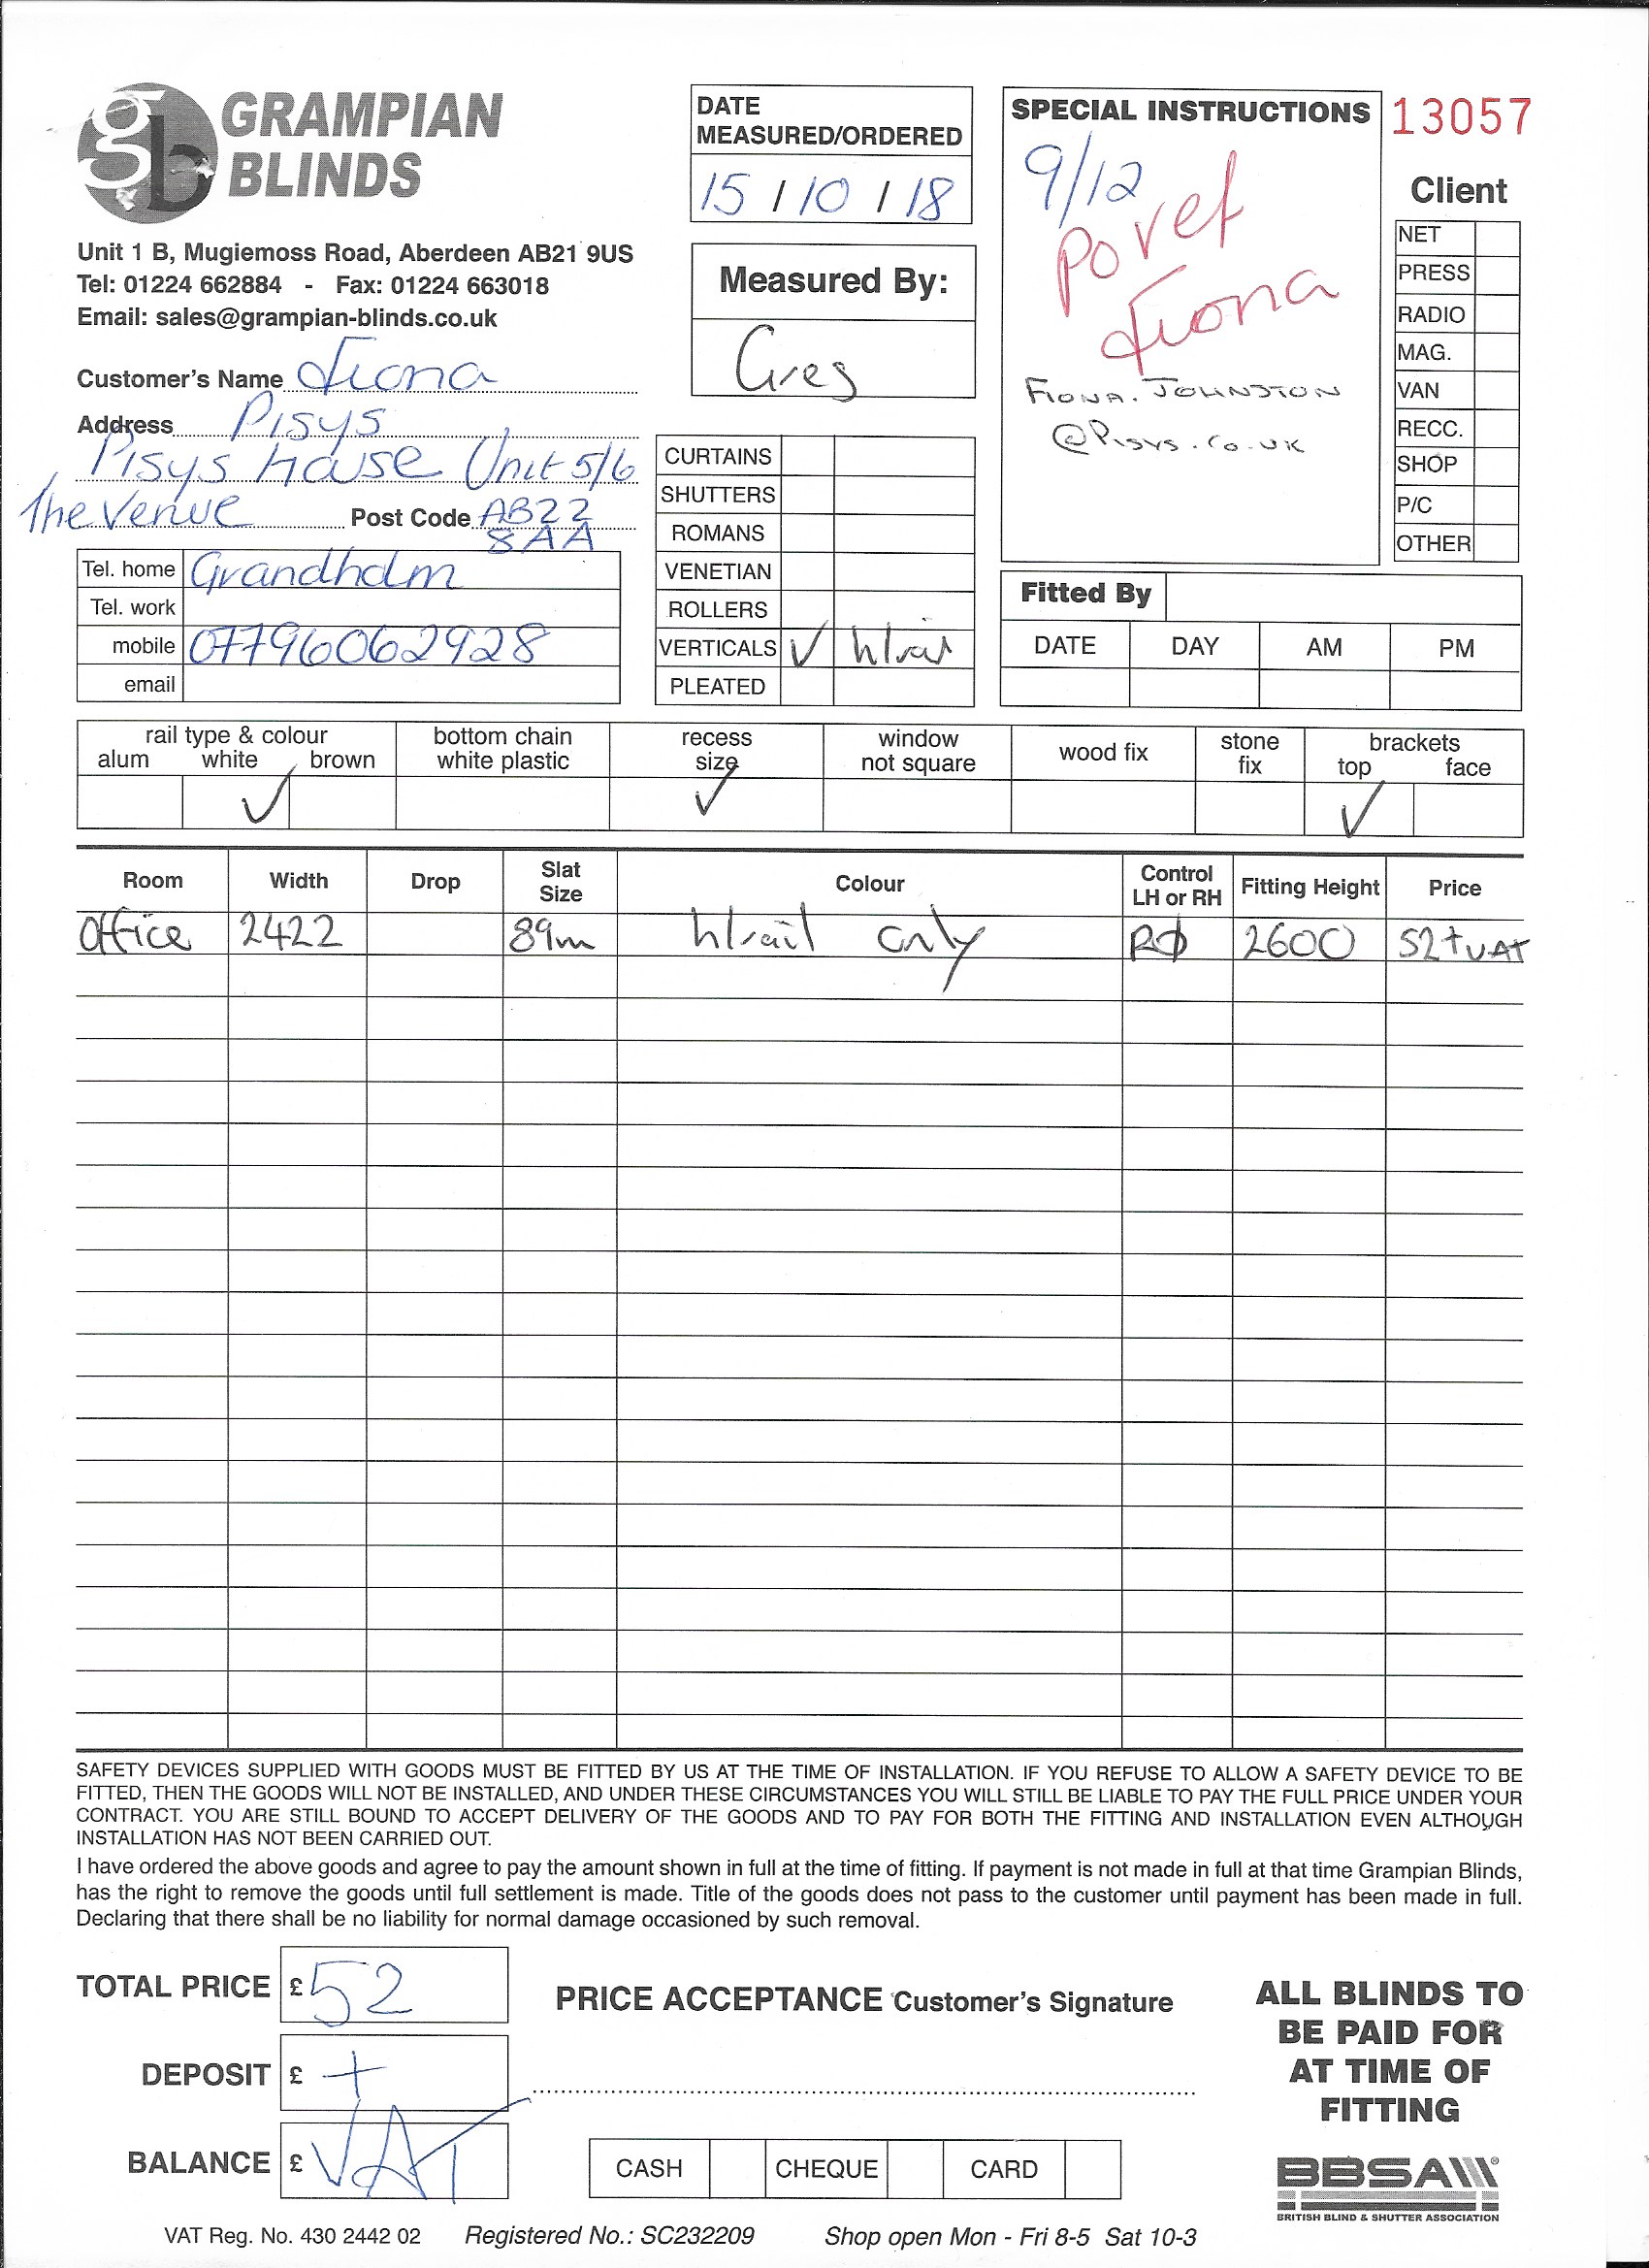 gb GRAMPIAN BLINDS
Unit 1 B, Mugiemoss Road, Aberdeen AB21 9US
Tel: 01224 662884 - Fax: 01224 663018
Email: sales@grampian-blinds.co.uk
Customer's Name Fiona
Address Pisys
Pisys House Unit 5/6
The Venue Post Code AB22
8AA
Tel. home Grandholm
Tel. work
mobile 07796062928
email
DATE
MEASURED/ORDERED
15 / 10 / 18
Measured By:
Greg
CURTAINS
SHUTTERS
ROMANS
VENETIAN
ROLLERS
VERTICALS ✓ h/rail
PLEATED
SPECIAL INSTRUCTIONS
9/12
PO ref
Fiona
FIONA.JOHNSTON
@PISYS.CO.UK
13057
Client
NET
PRESS
RADIO
MAG.
VAN
RECC.
SHOP
P/C
OTHER
Fitted By
DATE DAY AM PM
rail type & colour
alum white brown
✓
bottom chain
white plastic
recess
size
✓
window
not square
wood fix
stone
fix
brackets
top face
✓
Room Width Drop Slat Size Colour Control LH or RH Fitting Height Price
Office 2422 89m h/rail only 2600 52+VAT
SAFETY DEVICES SUPPLIED WITH GOODS MUST BE FITTED BY US AT THE TIME OF INSTALLATION. IF YOU REFUSE TO ALLOW A SAFETY DEVICE TO BE
FITTED, THEN THE GOODS WILL NOT BE INSTALLED, AND UNDER THESE CIRCUMSTANCES YOU WILL STILL BE LIABLE TO PAY THE FULL PRICE UNDER YOUR
CONTRACT. YOU ARE STILL BOUND TO ACCEPT DELIVERY OF THE GOODS AND TO PAY FOR BOTH THE FITTING AND INSTALLATION EVEN ALTHOUGH
INSTALLATION HAS NOT BEEN CARRIED OUT.
I have ordered the above goods and agree to pay the amount shown in full at the time of fitting. If payment is not made in full at that time Grampian Blinds,
has the right to remove the goods until full settlement is made. Title of the goods does not pass to the customer until payment has been made in full.
Declaring that there shall be no liability for normal damage occasioned by such removal.
TOTAL PRICE £ 52
DEPOSIT £ +
BALANCE £ VAT
PRICE ACCEPTANCE Customer's Signature
CASH CHEQUE CARD
ALL BLINDS TO
BE PAID FOR
AT TIME OF
FITTING
BBSA
BRITISH BLIND & SHUTTER ASSOCIATION
VAT Reg. No. 430 2442 02 Registered No.: SC232209 Shop open Mon - Fri 8-5 Sat 10-3